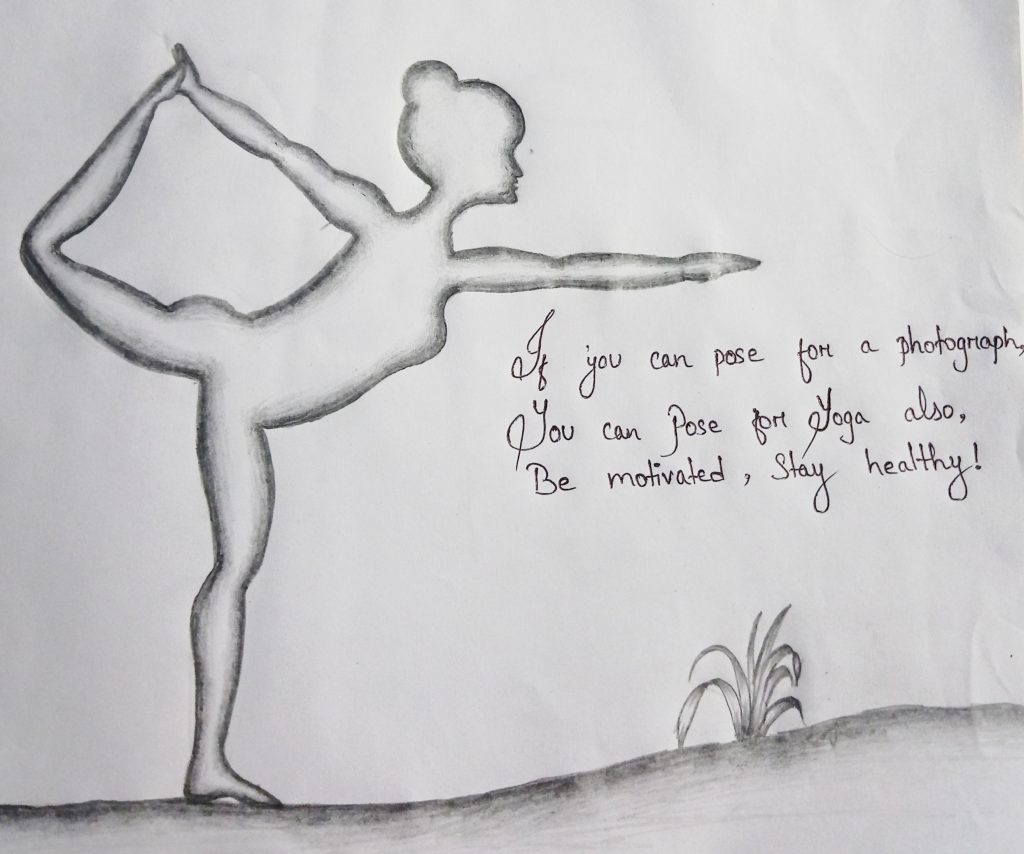 If you can pose for a photograph,
You can Pose for Yoga also,
Be motivated, Stay healthy!